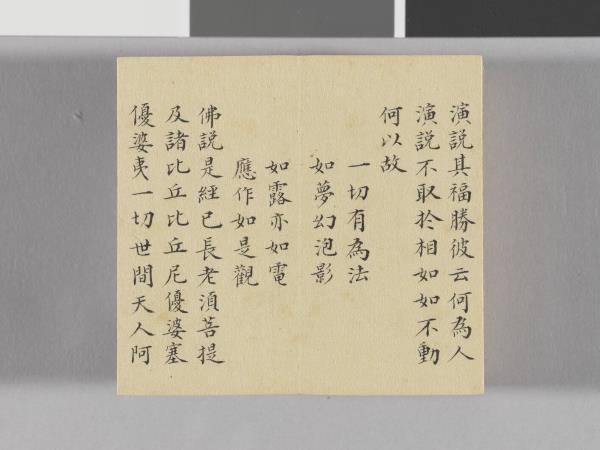 演說其福勝彼云何為人
演說不取於相如如不動
何以故
一切有為法
如夢幻泡影
如露亦如電
應作如是觀
佛說是經已長老須菩提
及諸比丘比丘尼優婆塞
優婆夷一切世間天人阿